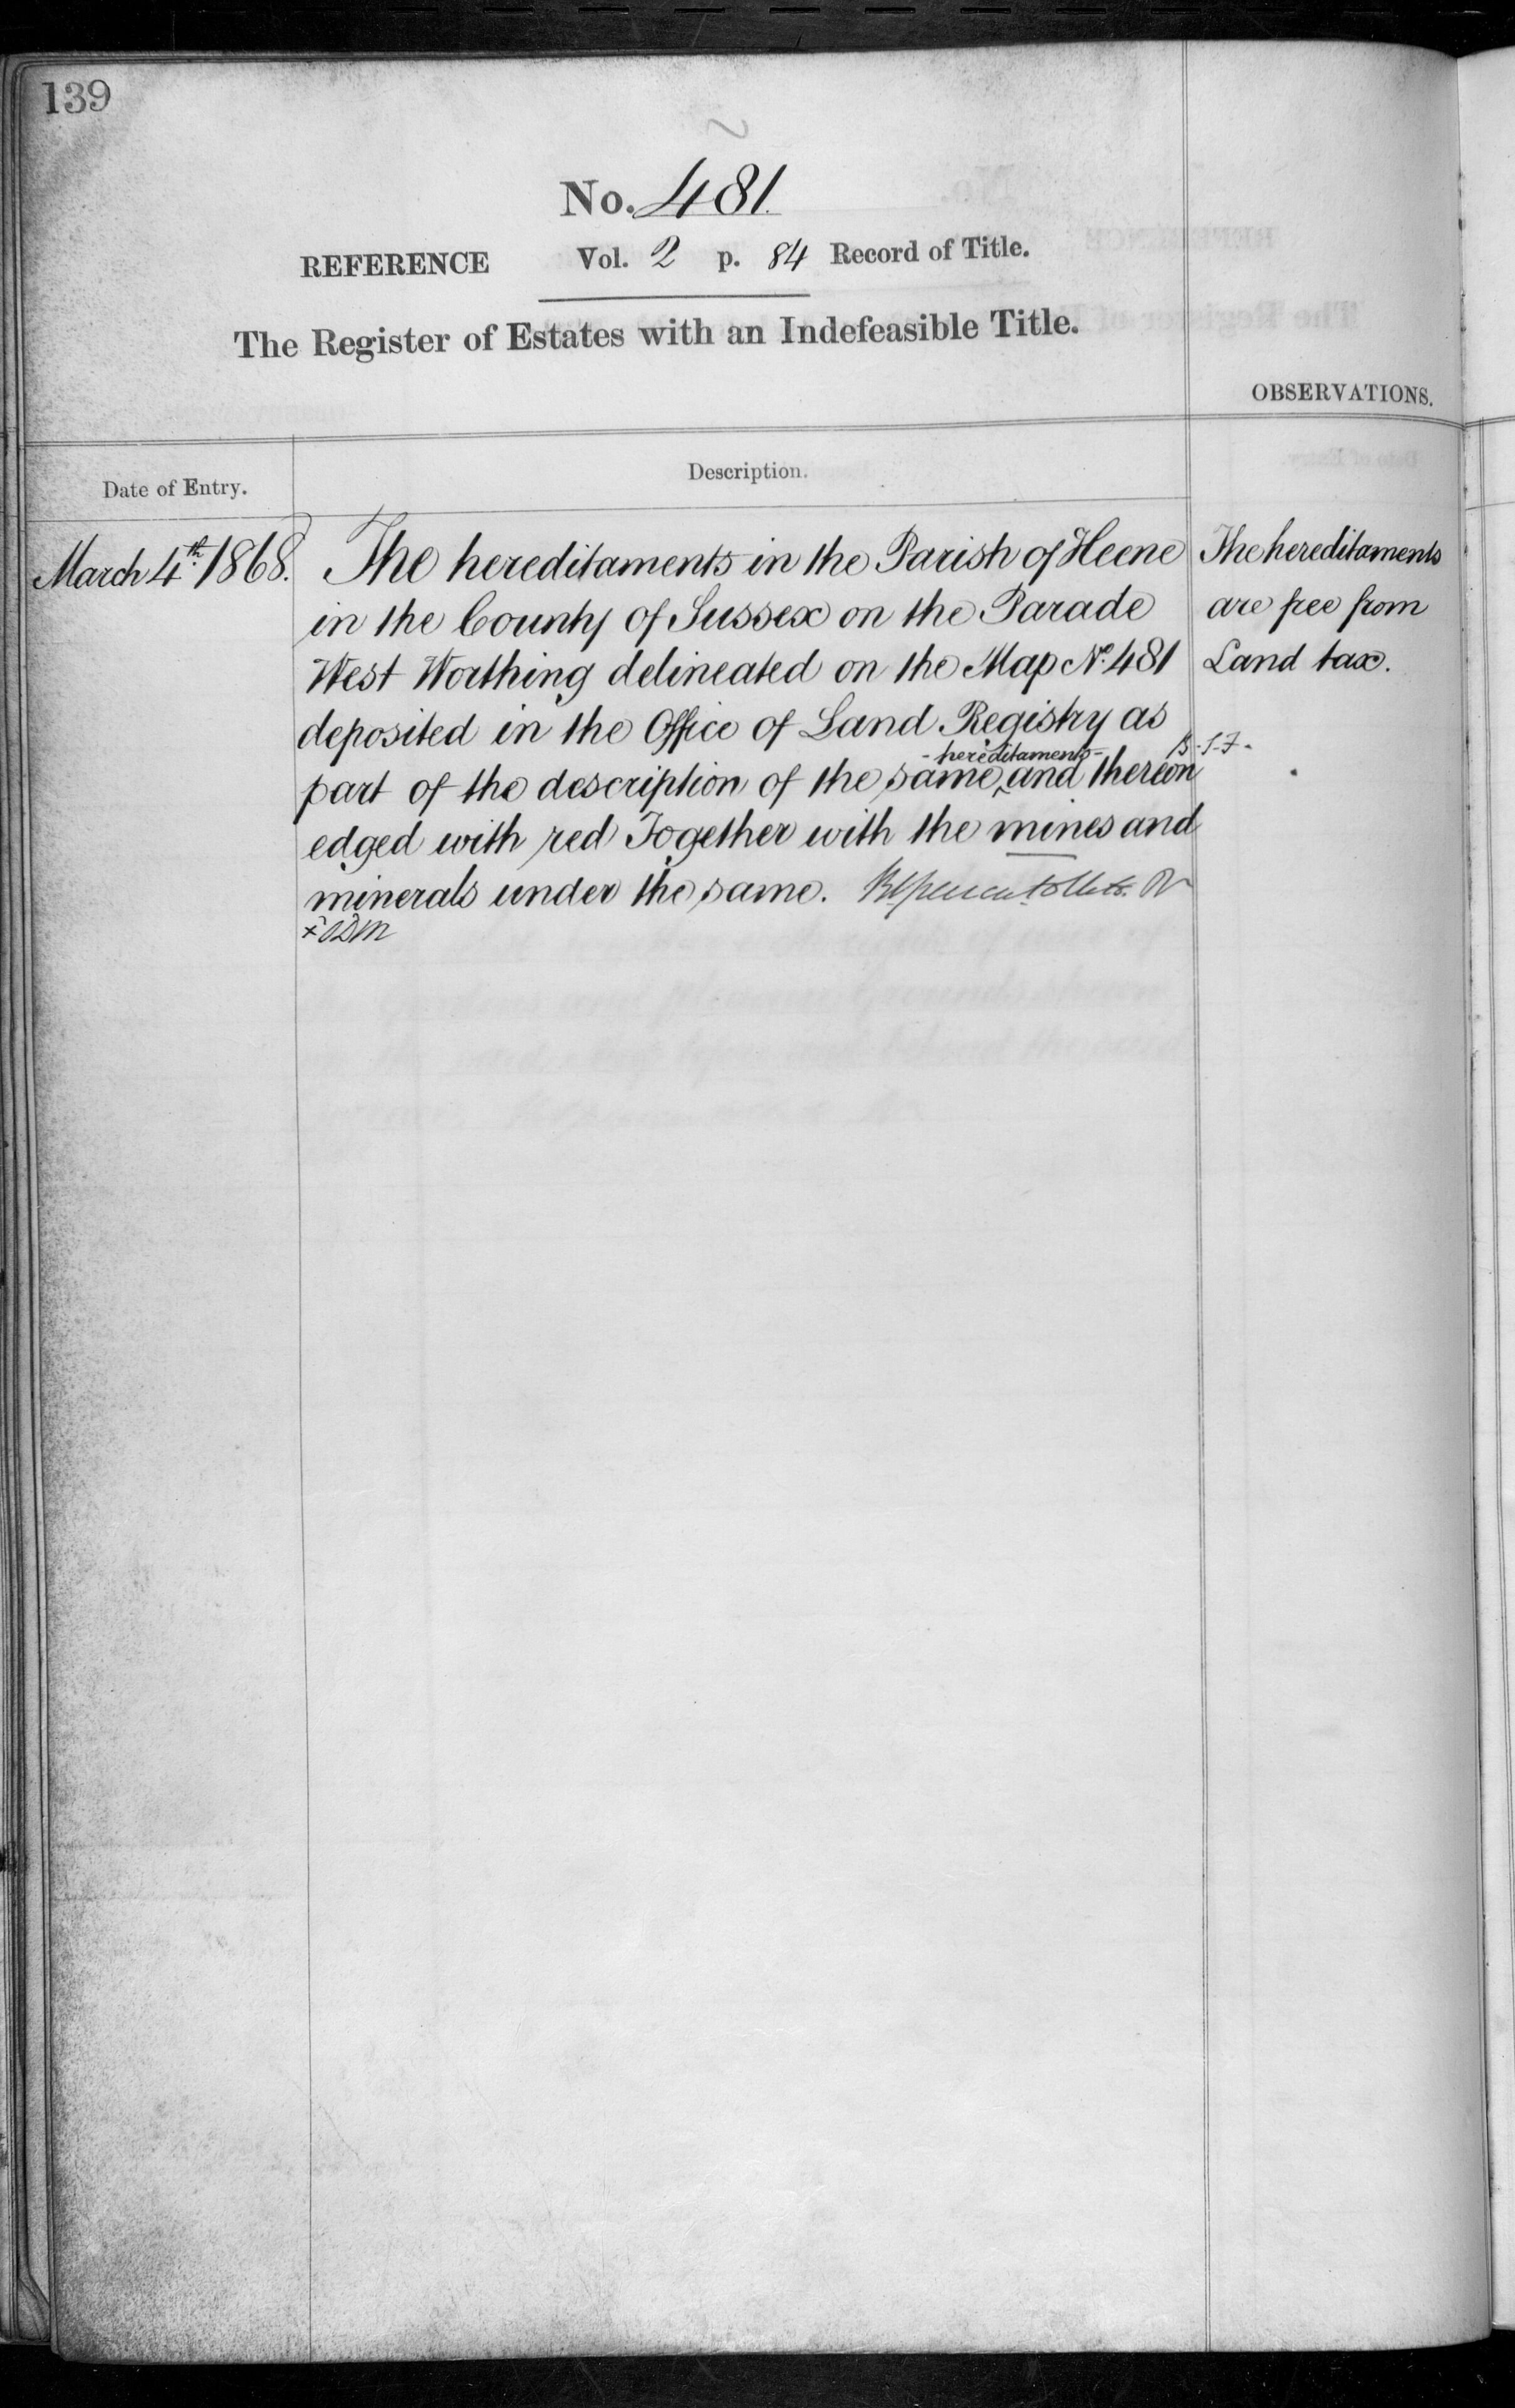 139
No. 481.
REFERENCE Vol. 2 p. 84 Record of Title.
The Register of Estates with an Indefeasible Title.
OBSERVATIONS.
Date of Entry.
Description.
March 4th. 1868.
The hereditaments in the Parish of Heene
in the County of Sussex on the Parade
West Worthing delineated on the Map No. 481
deposited in the Office of Land Registry as
- hereditaments -
part of the description of the same, and thereon
edged with red Together with the mines and
minerals under the same.
The hereditaments
are free from
Land tax.